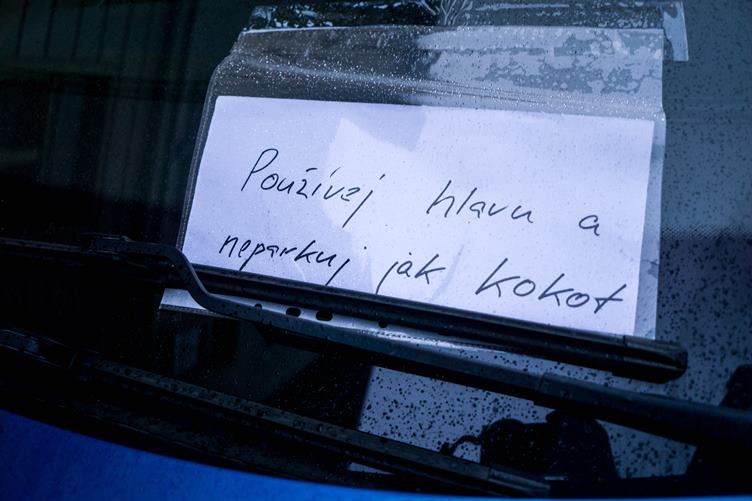 Používej hlavu a
neparkuj jak kokot